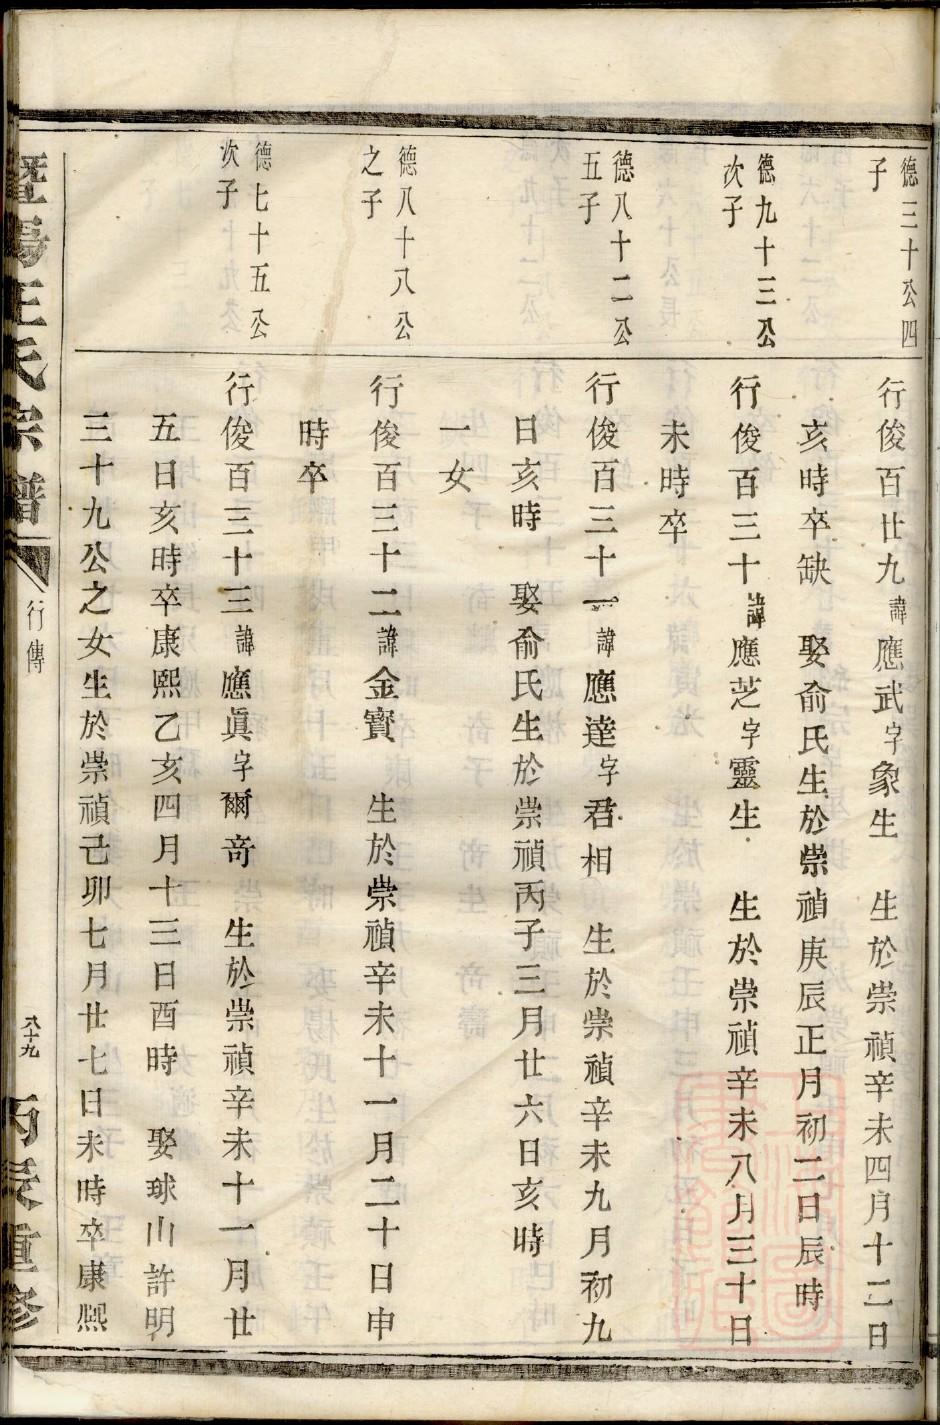 德三十公四
子
行俊百廿九諱應武字象生　生於崇禎辛未四月十二日
亥時卒缺　娶俞氏生於崇禎庚辰正月初二日辰時
德九十三公
次子
行俊百三十諱應芝字靈生　生於崇禎辛未八月三十日
未時卒
德八十二公
五子
行俊百三十一諱應達字君相　生於崇禎辛未九月初九
日亥時　娶俞氏生於崇禎丙子三月廿六日亥時
一女
德八十八公
之子
行俊百三十二諱金寳　生於崇禎辛未十一月二十日申
時卒
德七十五公
次子
行俊百三十三諱應眞字爾奇　生於崇禎辛未十一月廿
五日亥時卒康熙乙亥四月十三日酉時　娶球山許明
三十九公之女生於崇禎己卯七月廿七日未時卒康熙
暨陽王氏宗譜
行傳
八十九
丙辰重修